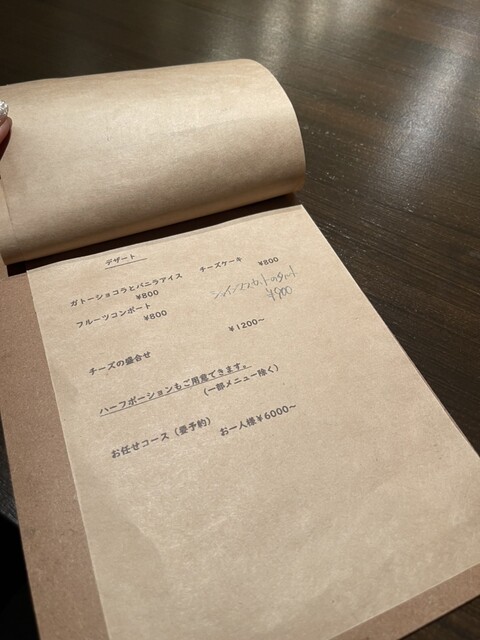 デザート
ガトーショコラとバニラアイス チーズケーキ ¥800
¥800
シャインマスカットのタルト
¥900
フルーツコンポート
¥800
チーズの盛合せ ¥1200～
ハーフポーションもご用意できます。
(一部メニュー除く)
お任せコース (要予約) お一人様¥6000～